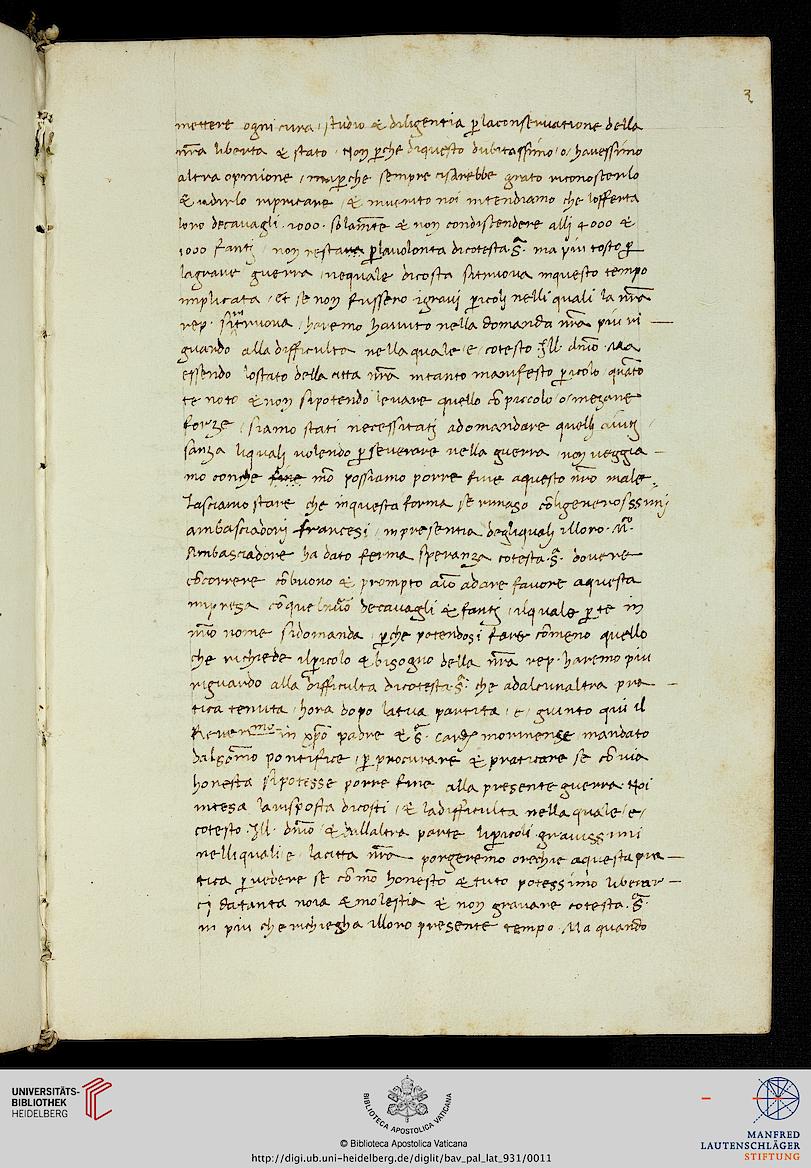 3
mettere ogni cura, studio & diligentia p laconservatione della
nr̃a liberta & stato. Non p che diquesto dubitassimo, o, havessimo
altra opinione, map che sempre cisarebbe grato riconoscerlo
& udirlo ripricare, & inverito noi intendiamo che lofferta
loro decavagli .1000. solamte & non condiscendere alli 4000 &
1000 fanti, non resta p lavolonta dicotesta .S. ma piu tosto p
lagrave guerra, nequale dicosta sitruova inquesto tempo
implicata, et se non fussero igravi p icoli nelli quali la nr̃a
rep. sitruova, haremo havuto nella domanda nr̃a piu ri
guardo alla difficulta nellaquale, e, cotesto Ill. dnio. Ma
essendo lostato della citta nr̃a intanto manifesto p icolo quāto
te noto & non sipotendo levare quello cō piccolo, o, mezane
forze, siamo stati necessitati adomandare quelli aiuti,
sanza liquali volendo p severare nella guerra, non veggia
mo conche mō possiamo porre fine aquesto nr̃o male.
Lasciamo stare che inquesta forma se rimaso cōligenerosissimi
ambasciadori francesi, inpresentia dequali illoro .M.
Ambasciadore ha dato ferma speranza cotesta .S. dovere
cōcorrere cōbuono & prompto aīo adare favore aquesta
impresa cōquel decavagli & fanti, ilquale p te in
nr̃o nome sidomanda, p che potendosi fare cōmeno quello
che richiede ilp icolo & bisogno della nr̃a rep. haremo piu
riguardo alla difficulta dicotesta .S. che adalcunaltra pra
tica tenuta, hora dopo latua partita, e, giunto qui il
Reverēmo in xp̄o padre & S. cardl morinense, mandato
dalsōmo pontifice, p procurare & praticare se cō via
honesta sipotesse porre fine alla presente guerra. Noi
intesa larisposta dicosti, & ladifficulta nellaquale, e,
cotesto .Ill. dnio & dallaltra parte lip icoli gravissimi
nelliquali, e, lacitta nr̃a porgeremo orechie aquesta pra
tica p vedere se cō mō honesto & tuto potessimo liberar
ci datanta noia & molestia & non gravare cotesta .S.
in piu che richiegha illoro presente tempo. Ma quando
UNIVERSITÄTS-
BIBLIOTHEK
HEIDELBERG
BIBLIOTHECA APOSTOLICA VATICANA
© Biblioteca Apostolica Vaticana
http://digi.ub.uni-heidelberg.de/diglit/bav_pal_lat_931/0011
MANFRED
LAUTENSCHLÄGER
STIFTUNG